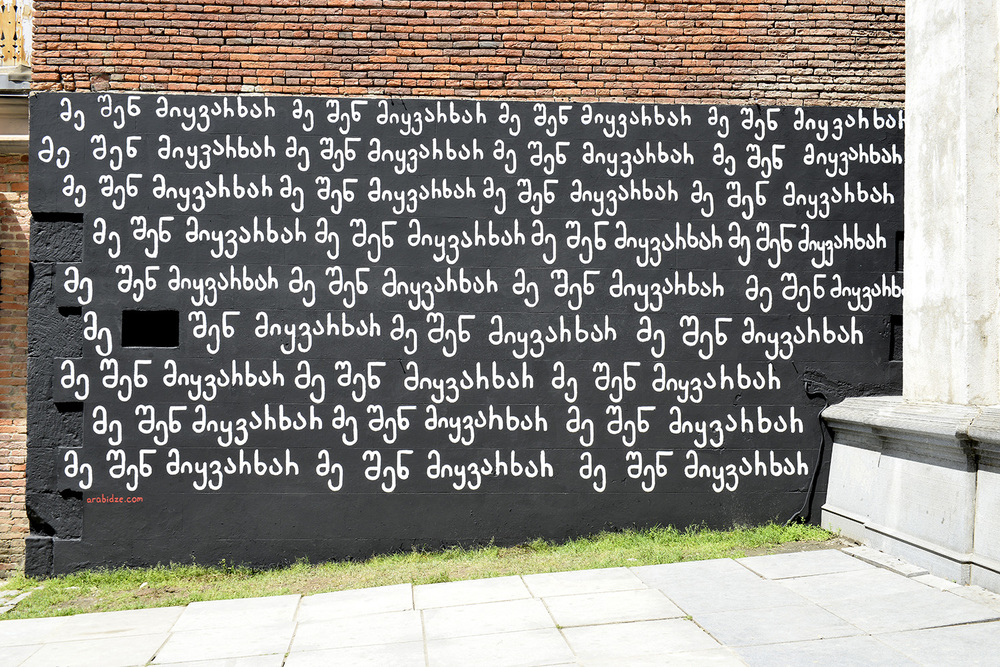 მე შენ მიყვარხარ მე შენ მიყვარხარ მე შენ მიყვარხარ მე შენ მიყვარხარ
მე შენ მიყვარხარ მე შენ მიყვარხარ მე შენ მიყვარხარ მე შენ მიყვარხარ
მე შენ მიყვარხარ მე შენ მიყვარხარ მე შენ მიყვარხარ მე შენ მიყვარხარ
მე შენ მიყვარხარ მე შენ მიყვარხარ მე შენ მიყვარხარ მე შენ მიყვარხარ
მე შენ მიყვარხარ მე შენ მიყვარხარ მე შენ მიყვარხარ მე შენ მიყვარხა
მე შენ მიყვარხარ მე შენ მიყვარხარ მე შენ მიყვარხარ
მე შენ მიყვარხარ მე შენ მიყვარხარ მე შენ მიყვარხარ
მე შენ მიყვარხარ მე შენ მიყვარხარ მე შენ მიყვარხარ
მე შენ მიყვარხარ მე შენ მიყვარხარ მე შენ მიყვარხარ
arabidze.com